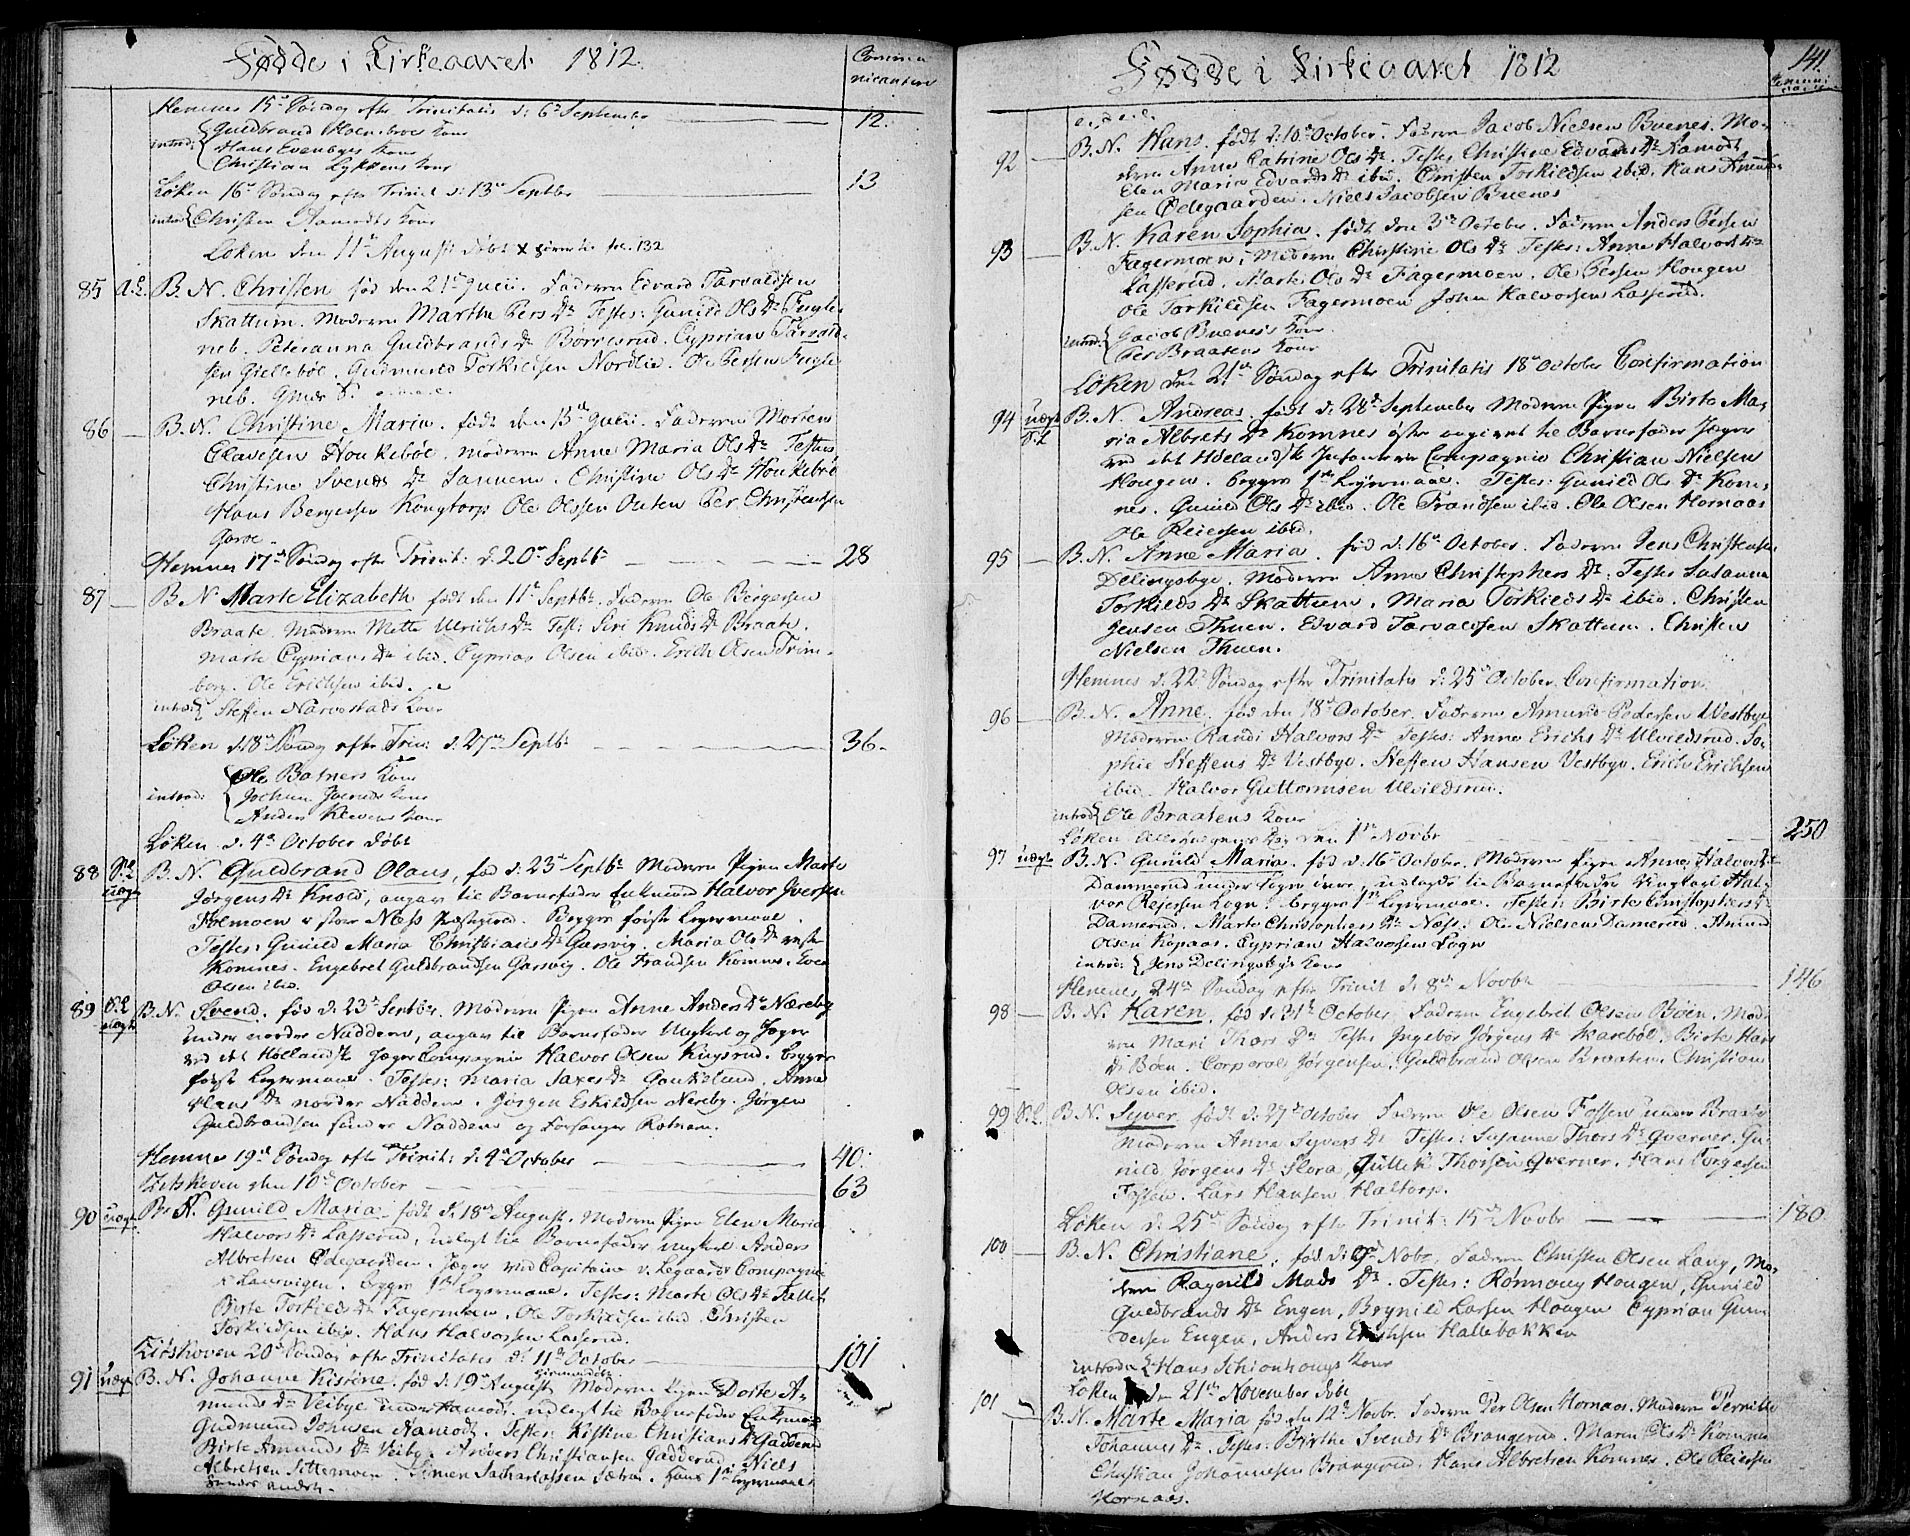 Fødde i Kirkeaaret 1812.
Communicantere
Hemnes 15de Søndag efter Trinitatis d: 6te September 12.
introd: Guldbrand Kone
Hans Evenbyes Kone
Christian Lykkens Kone
Løken 16de Søndag efter Trinit d: 13de Septbr 13
introd Christen Kone
Løken den 11te August døbt fol. 132
85 B. N. Christen fød den 21de Juni. Faderen Edvard Tarvaldsen
Skattum. Moderen Marthe Pers Dr Testes: Gunild Ols Dr Fugle-
neb. Peteranna Guldbrands Dr Børresrud. Cyprian Tarvald-
sen Giellebøl. Gudmund Torkildsen Nordlie. Ole Persen Fugle
neb.
86 — B. N. Christine Maria. født den 13de Juli. Faderen Morten
Olavesen Houkebøl. Moderen Anne Maria Ols Dr Testes
Christine Svends Dr Sannem. Christine Ols Dr Houkebøl
Hans Bergersen Kongtorp Ole Olssen Per Christensen
Hemnes 17de Søndag efter Trinit: d. 20de Septbr — 28
87 — B N Marte Elizabeth født den 11te Septbr. Faderen Ole Bergersen
Braate. Moderen Mette Ulrichs Dr Test: Siri Knuds Dr Braate.
Marte Cyprians Dr ibid. Cyprian Olsen ibid. Erich Olsen Trim-
borg. Ole Erichsen ibid.
introd Steffen Narvestads Kone
Løken d: 18de Søndag efter Trin: d. 27de Septbr 36.
introd: Ole Botners Kone
Jochum Kone
Anders Klevens Kone
Løken d. 4de October døbt
88 S.L. uægte B. N. Guldbrand Olaus, fød d. 23de Septbr Moderen Pigen Marte
Jørgens Dr Knold, angav til Barnefader Enkemand Halvor Iversen
Holmoen i store Næss Præstegield. Begges første Leyermaal.
Testes: Gunild Maria Christians Dr Garsvig. Maria Ols Dr
Komnes. Engebret Guldbrandsen Garsvig. Ole Frandsen Komnes.
Olsen ibid.
89 S.L. uægte B. N. Svend. fød d. 23de Septbr. Moderen Pigen Anne Anders Dr Næreby
under nordre Nadderu, angav til Barnefader Ungkarl og Jæger
ved det Hølandske Jæger Compagnie Halvor Olsen Kinsrud. begges
første Leyermaal. Testes: Maria Saxes Dr. Anne
Hans Dr nordre Nadderu. Jørgen Eskildsen Nereby. Jørgen
Guldbrandsen søndre Nadderu og Forsanger Rotnem.
Hemnes 19de Søndag efter Trinit: d. 4de October 40.
Setskoven den 10de October 63
90 uægte B. N. Gunild Maria. født d. 18de August. Moderen Pigen Elen Maria
Halvors Dr Lasserud, udlagt til Barnefader Ungkarl Anders
Albretsen Ødegaarden. Jæger ved Capitain v. Legaards Compagnie
i Laurvigen. begges 1ste Leyermaal. Testes: Marte Ols Dr
Birte Torkilds Dr Fagermoen. Ole Torkildsen ibid. Christen
Torkildsen ibid. Hans Halvorsen Lasserud.
Setskoven 20de Søndag efter Trinitatis d: 11te October 101
91 uægte B. N. Johanne Kistine. fød d. 19de August hiemmedøbt. Moderen Pigen Dorte A-
munds Dr Veibye under udlagt til Barnefader Enkemand
Gudmund Johnsen. Testes: Kistine Christians Dr Gadderud
Birte Amunds Dr Veibye. Anders Christiansen Gadderud. Niels
Albretsen Sittermoen. Simen Sachariassen Sætra. hans 1ste Leyermaal

Fødde i Kirkeaaret 1812
141.
92 — B. N. Hans. født d: 10de October. Faderen Jacob Nielsen Buenes. Mo-
deren Anne Catrine Ols Dr. Testes Christine Edvards Dr
Elen Maria Edvards Dr ibid. Christen Torkildsen ibid. Hans Amund-
sen Ødegaarden. Niels Jacobsen Buenes
93 — B. N. Karen Sophia. født den 3de October. Faderen Anders Persen
Fagermoen, Moderen Christine Ols Dr Testes: Anne Halvors Dr
Lasserud. Marte Ols Dr Fagermoen. Ole Persen Hougen
Ole Torkildsen Fagermoen John Halvorsen Lasserud.
introd: Jacob Buenes's Kone
Per Braatens Kone
Løken den 21de Søndag efter Trinitatis 18de October Confirmation
94 uægte S.L B. N. Andreas. født d. 28de September Moderen Pigen Birte Ma-
ria Albrets Dr Komnes østre angivet til Barnefader Jæger
ved det Hølandsk Infanterie Compagnie Christian Nielsen
Hougen. begges 1ste Leyermaal. Testes: Gunild Ols Dr Kom-
nes. Gunild Ols Dr ibid. Ole Frandsen ibid. Ole Olsen Hornaas
Ole Reiersen ibid.
95 — B. N. Anne Maria. fød d: 16de October. Faderen Jens Christensen
Delingsbye. Moderen Anne Christophers Dr: Testes Susanna
Torkilds Dr Skattum. Maria Torkilds Dr ibid. Christen
Jensen Thuen. Edvard Tarvaldsen Skattum. Christen
Nielsen Thuen.
Hemnes d. 22de Søndag efter Trinitatis d: 25de October. Confirmation.
96 — B. N. Anne. fød den 18de October. Faderen Amund Pedersen Westbye
Moderen Randi Halvors Dr Testes: Anne Erichs Dr Ulvildsrud. So-
phie Steffens Dr Vestbye. Steffen Hansen Vestbye. Erich Erichsen
ibid. Halvor Guttormsen Ulvildsrud.
introd Ole Braatens Kone
Løken den 1ste Novbr 250
97 uægte B. N. Gunild Maria. fød d. 16de October. Moderen Pigen Anne Halvors Dr
Dammerud under udlagde til Barnefader Ungkarl Hal-
vor Reiersen Fogn. begges 1ste Leyermaal. Testes: Birte Christophers Dr
Damerud. Marte Christophers Dr Næss. Ole Nielsen Damerud. Amund
Olsen Kopaas. Cyprian Halvorsen Fogn
introd: Jens Delingsbyes Kone
Hemnes 24de Søndag efter Trinit d. 8de Novbr 146
98 — B. N. Karen. fød d. 31te October. Faderen Engebret Olsen Bøen. Mod-
ren Mari Thors Dr Testes Ingebor Jørgens Dr Skarebøl. Birte Hans
Dr Bøen. Corporal Jørgensen. Guldbrand Olsen Braaten. Christian
Olsen ibid.
99 S.L. B. N. Syver. født d: 27de October Faderen Ole Olsen Fossen under Braate
Moderen Anna Syvers Dr Testes: Susanne Thors Dr Qverner. Gu-
nild Jørgens Dr Flora, Gullik Thorsen Qverner. Hans Torgersen
Fossen. Lars Hansen Haltorp.
Løken d: 25de Søndag efter Trinit: 15de Novbr 180
100 — B. N. Christiane. fød d: 9de Nobr. Faderen Christen Olsen Lang, Mo-
deren Ragnild Mads Dr. Testes: Rønnaug Hougen, Gunild
Guldbrands Dr Engen, Brynild Larsen Hougen Cyprian Gun-
dersen Engen, Anders Erichsen Hallebakken
introd: Hans Schionhougs Kone
Løken den 21de November døbt
101 B. N. Marte Maria fød den 12te Novbr. Faderen Per Olsen Hornaas. Moderen Pernille
Johannes Dr. Testes: Birthe Svends Dr Brangerud. Maren Ols Dr Komnes
Christian Johannesen Brangerud. Hans Albretsen Komnes. Ole Reiersen
Hornaas.